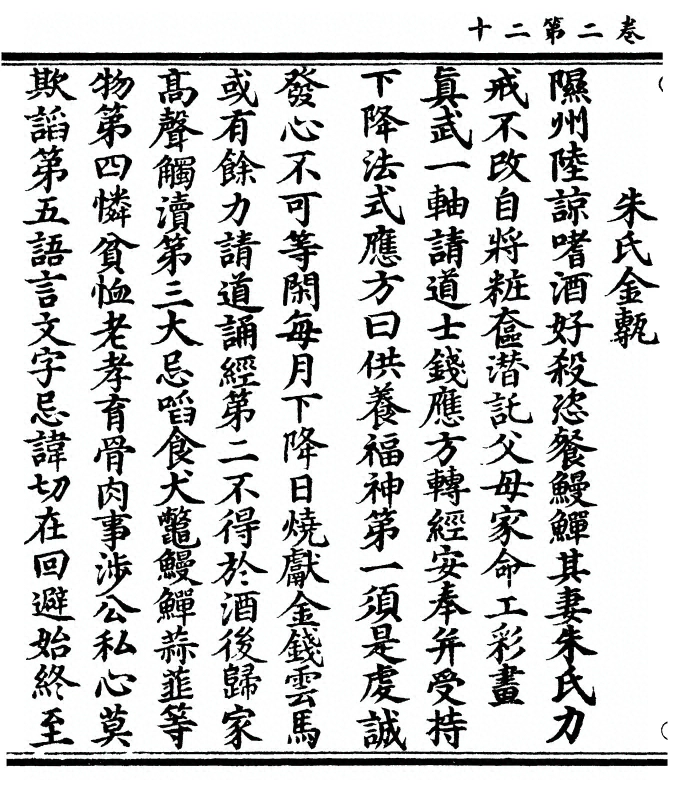 卷二第二十
朱氏金甎
隰州陸諒嗜酒好殺恣餐鰻鱓其妻朱氏力
戒不改自將粧奩潛託父母家命工彩畫
真武一軸請道士錢應方轉經安奉并受持
下降法式應方曰供養福神第一須是虔誠
發心不可等閑每月下降日燒獻金錢雲馬
或有餘力請道誦經第二不得於酒後歸家
高聲觸瀆第三大忌啗食犬鼈鰻鱓蒜韮等
物第四憐貧恤老孝育骨肉事涉公私心莫
欺謟第五語言文字忌諱切在回避始終至